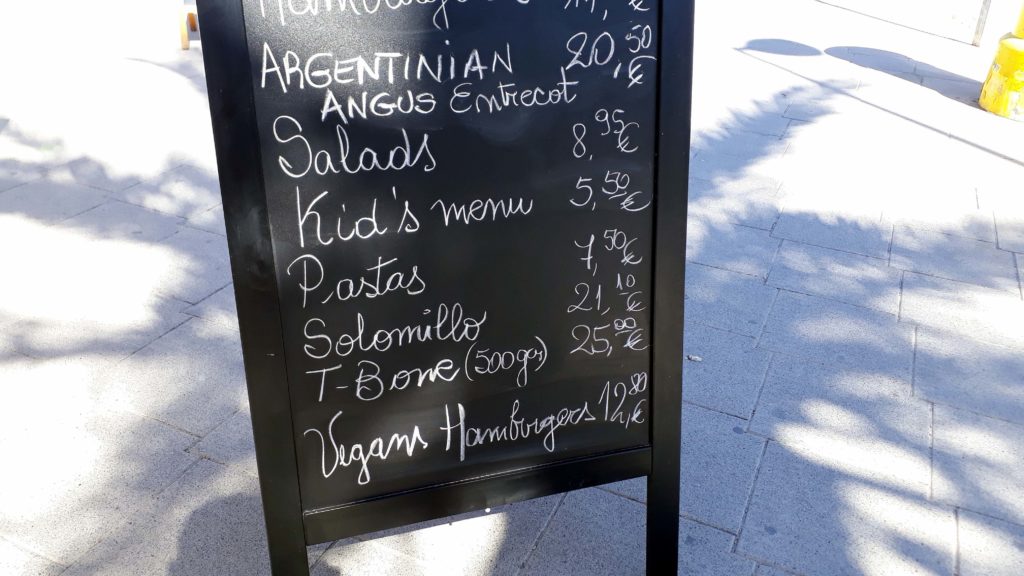 Hamburgers
ARGENTINIAN 20,50 €
ANGUS Entrecot
Salads 8,95 €
Kid's menu 5,50 €
Pastas 7,50 €
Solomillo 21,10 €
T-Bone (500grs) 25,00 €
Vegans Hamburgers 12,80 €